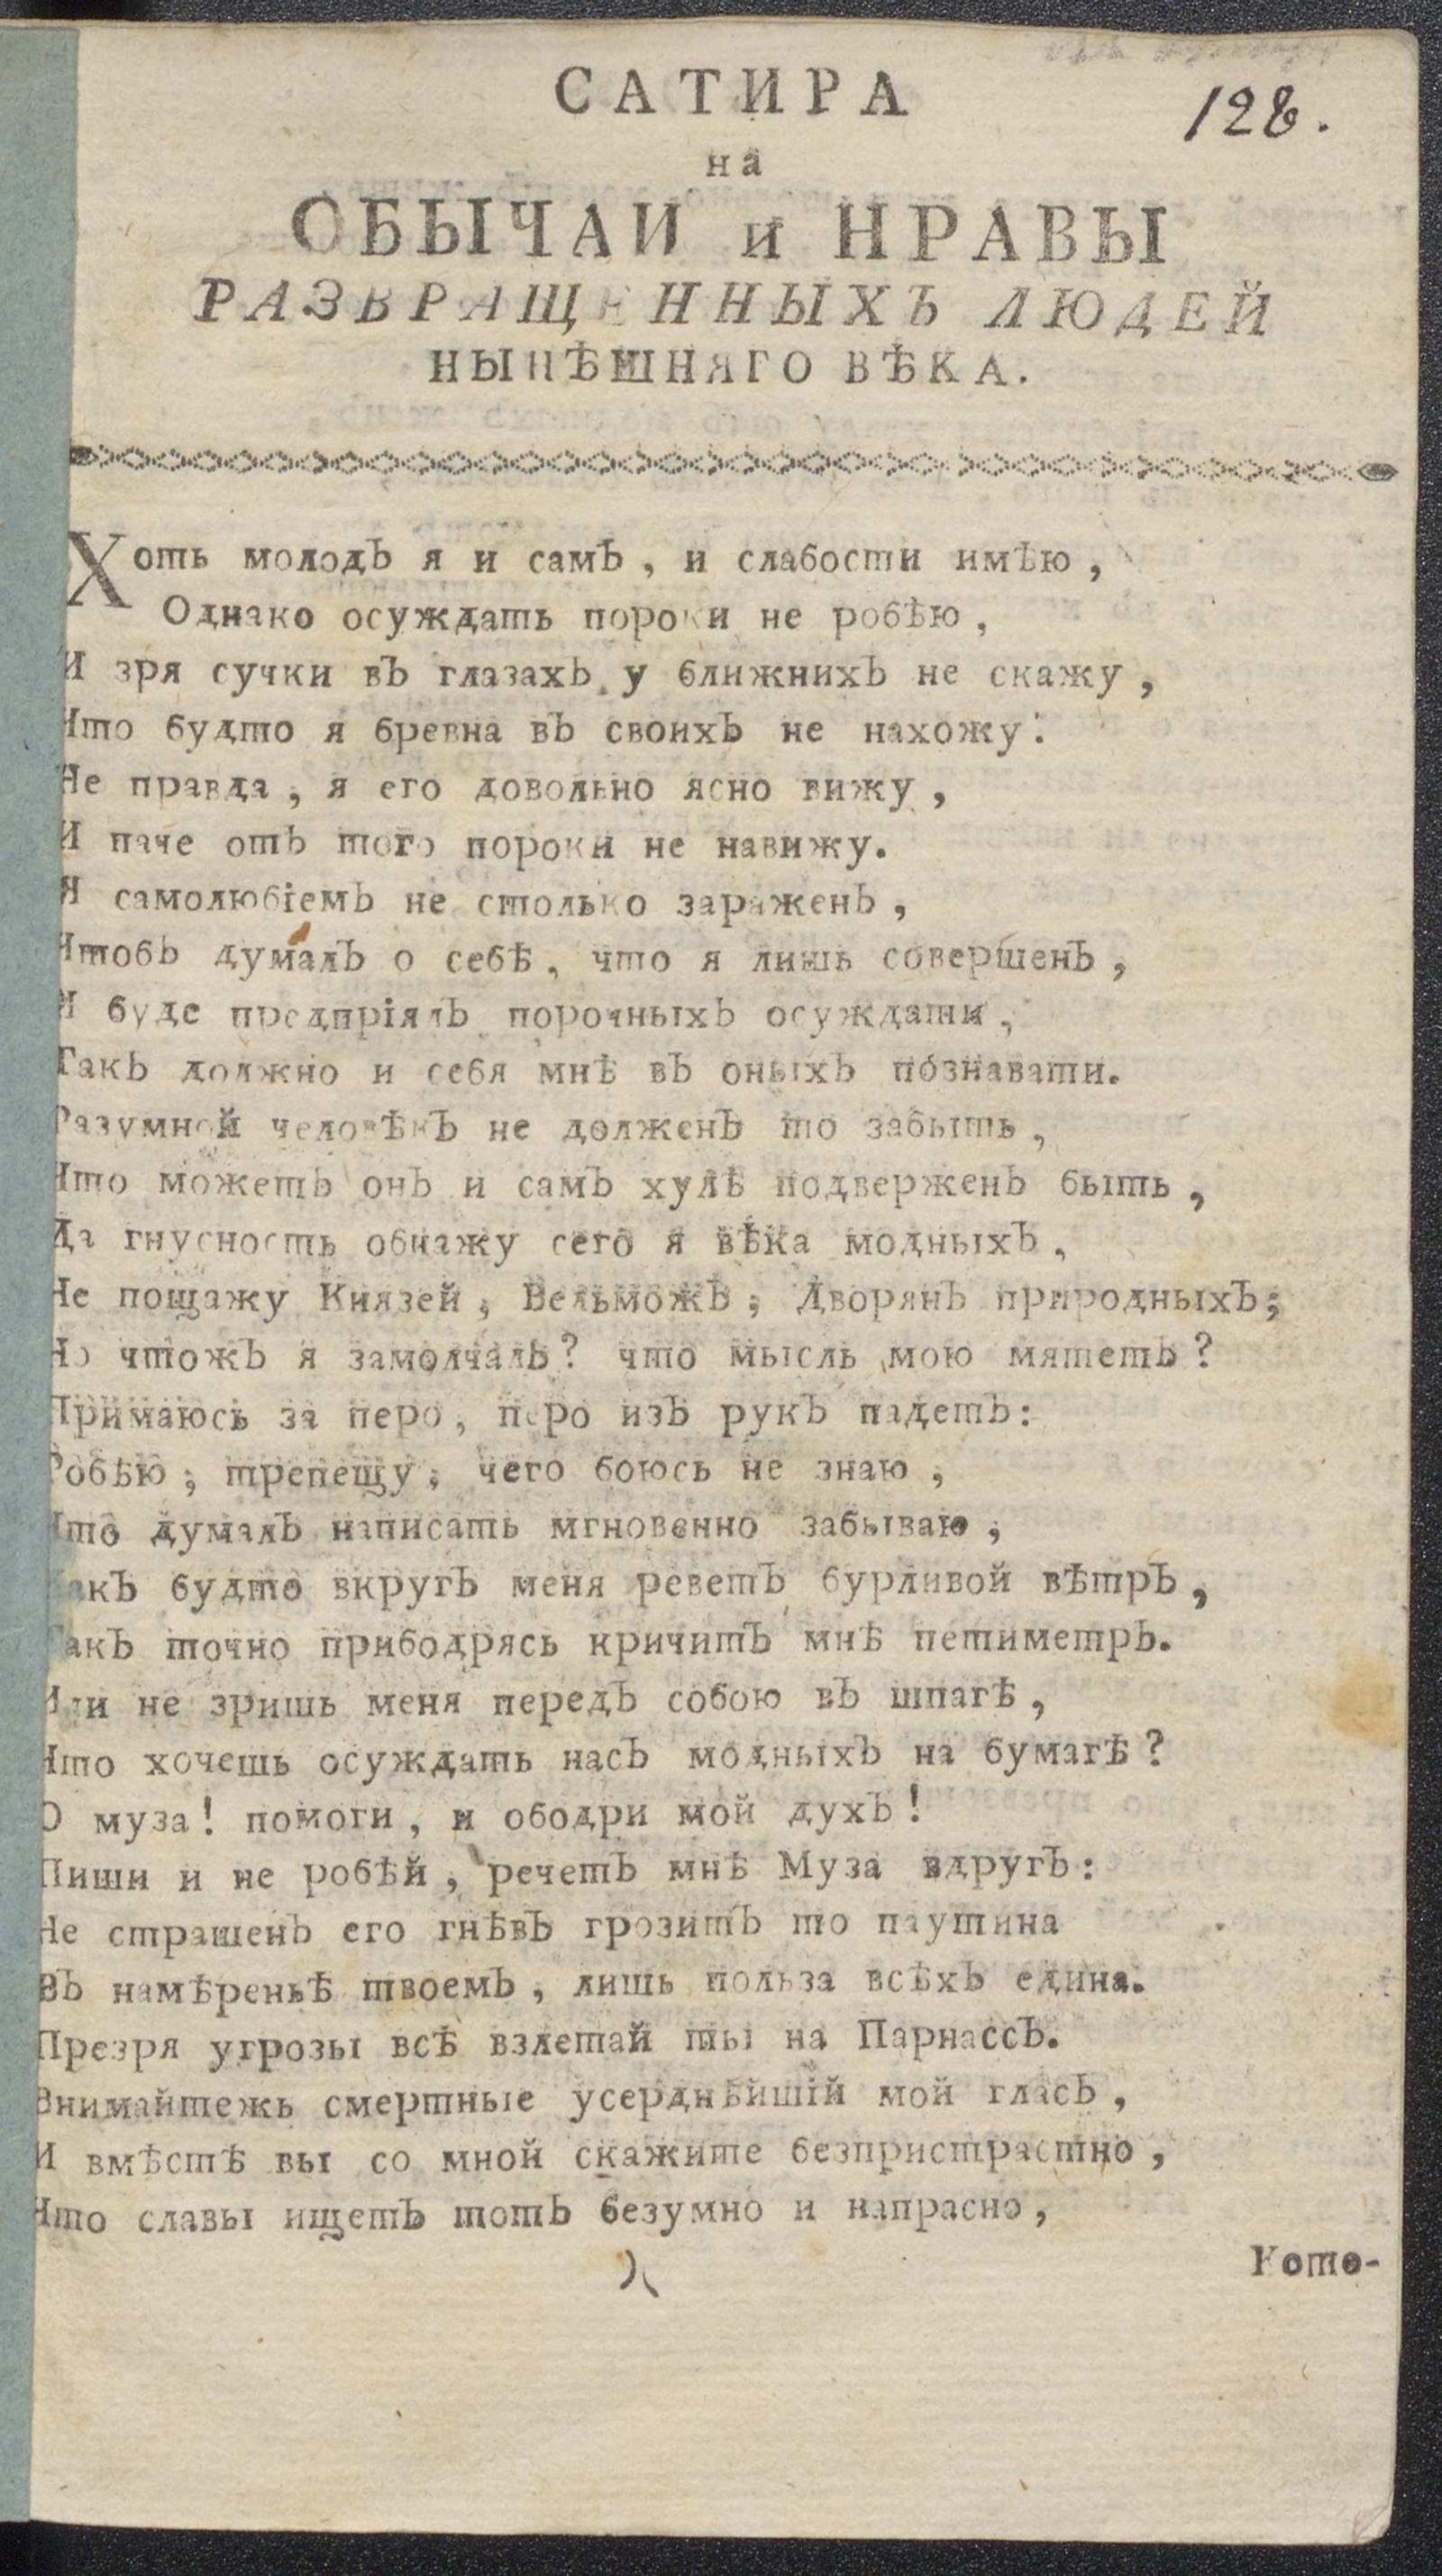 128.
САТИРА
на
ОБЫЧАИ и НРАВЫ
РАЗВРАЩЕННЫХЪ ЛЮДЕЙ
НЫНѢШНЯГО ВѢКА.
Хоть молодъ я и самъ, и слабости имѣю,
Однако осуждать пороки не робѣю,
И зря сучки въ глазахъ у ближнихъ не скажу,
Что будто я бревна въ своихъ не нахожу:
Не правда, я его довольно ясно вижу,
И паче отъ того пороки не навижу.
Я самолюбіемъ не столько зараженъ,
Чтобъ думалъ о себѣ, что я лишь совершенъ,
И буде предпріялъ порочныхъ осуждати,
Такъ должно и себя мнѣ въ оныхъ познавати.
Разумной человѣкъ не долженъ то забыть,
Что можетъ онъ и самъ хулѣ подверженъ быть,
Да гнусность обнажу сего я вѣка модныхъ,
Не пощажу Князей, Вельможъ, Дворянъ природныхъ;
Но чтожъ я замолчалъ? что мысль мою мятетъ?
Примаюсь за перо, перо изъ рукъ падетъ:
Робѣю, трепещу, чего боюсь не знаю,
Что думалъ написать мгновенно забываю,
Какъ будто вкругъ меня реветъ бурливой вѣтръ,
Такъ точно прибодрясь кричитъ мнѣ петиметръ.
Или не зришь меня передъ собою въ шпагѣ,
Что хочешь осуждать насъ модныхъ на бумагѣ?
О муза! помоги, и ободри мой духъ!
Пиши и не робѣй, речетъ мнѣ Муза вдругъ:
Не страшенъ его гнѣвъ грозитъ то паутина
Въ намѣреньѣ твоемъ, лишь польза всѣхъ едина.
Презря угрозы всѣ взлетай ты на Парнассъ.
Внимайтежь смертные усерднѣйшій мой гласъ,
И вмѣстѣ вы со мной скажите безпристрастно,
Что славы ищетъ тотъ безумно и напрасно,
)(
Кото-